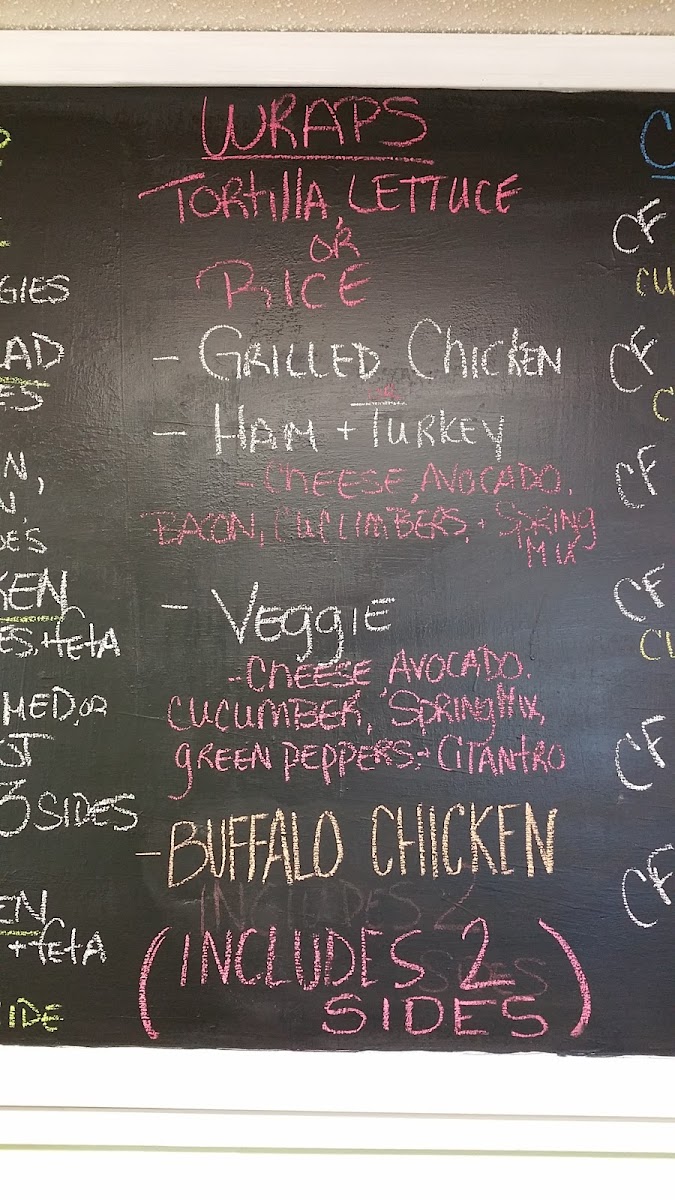 WRAPS
TORTILLA, LETTUCE
OR
RICE
- GRILLED CHICKEN
OR
- HAM + TURKEY
- CHEESE, AVOCADO,
BACON, CUCUMBERS, + SPRING
MIX
- VEGGIE
- CHEESE AVOCADO,
CUCUMBER, SPRING MIX,
GREEN PEPPERS + CILANTRO
- BUFFALO CHICKEN
INCLUDES 2
SIDES
(INCLUDES 2
SIDES)
GIES
AD
ES
N,
N,
DE'S
KEN
ES, + feta
MED, OR
ST
3 SIDES
EN
+ feta
IDE
C
CF
CU
CF
C
CF
CF
CU
CF
CF